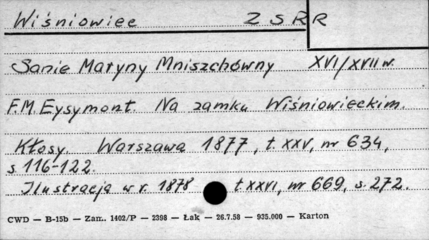 Wiśniowiec ZSRR
Sanie Maryny Mniszchówny XVI/XVII w.
F.M. Eysymont. Na zamku Wiśniowieckim.
Kłosy. Warszawa 1877, t. XXV, nr 634,
s. 116-122.
Ilustracja w r. 1878 t. XXVI, nr 669, s. 272.
CWD — B-15b — Zam. 1402/P — 2398 — Łak — 26.7.58 — 935.000 — Karton